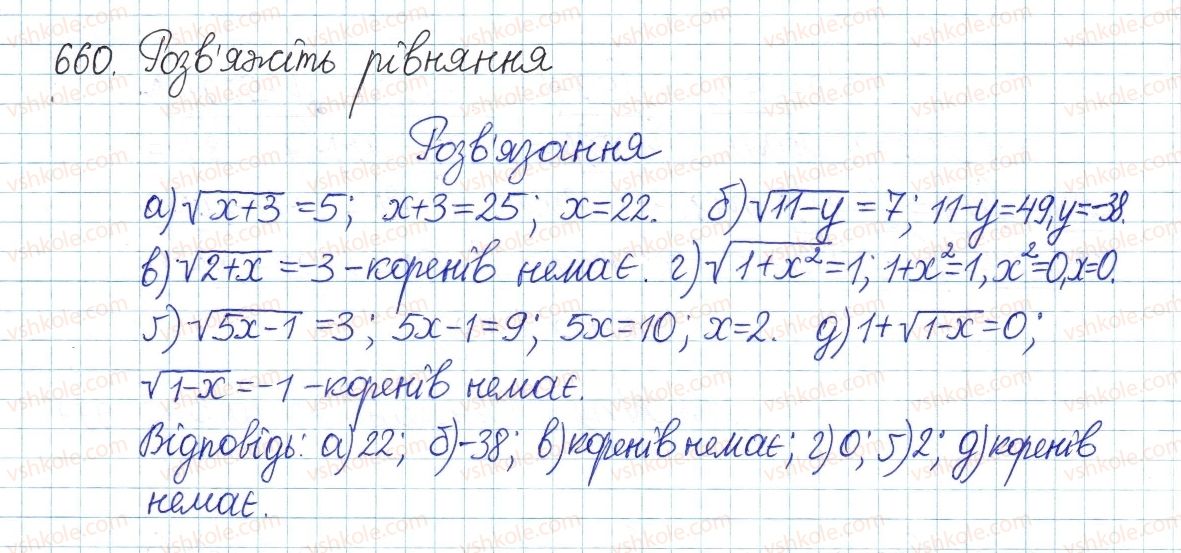 660. Розв'яжіть рівняння
Розв'язання
а) √x+3 = 5; x+3=25; x=22. б) √11-y = 7; 11-y=49, y=-38.
в) √2+x = -3 - коренів немає. г) √1+x² = 1; 1+x²=1, x²=0, x=0.
ґ) √5x-1 = 3; 5x-1=9; 5x=10; x=2. д) 1+√1-x = 0;
√1-x = -1 - коренів немає.
Відповідь: а) 22; б) -38; в) коренів немає; г) 0; ґ) 2; д) коренів
немає.